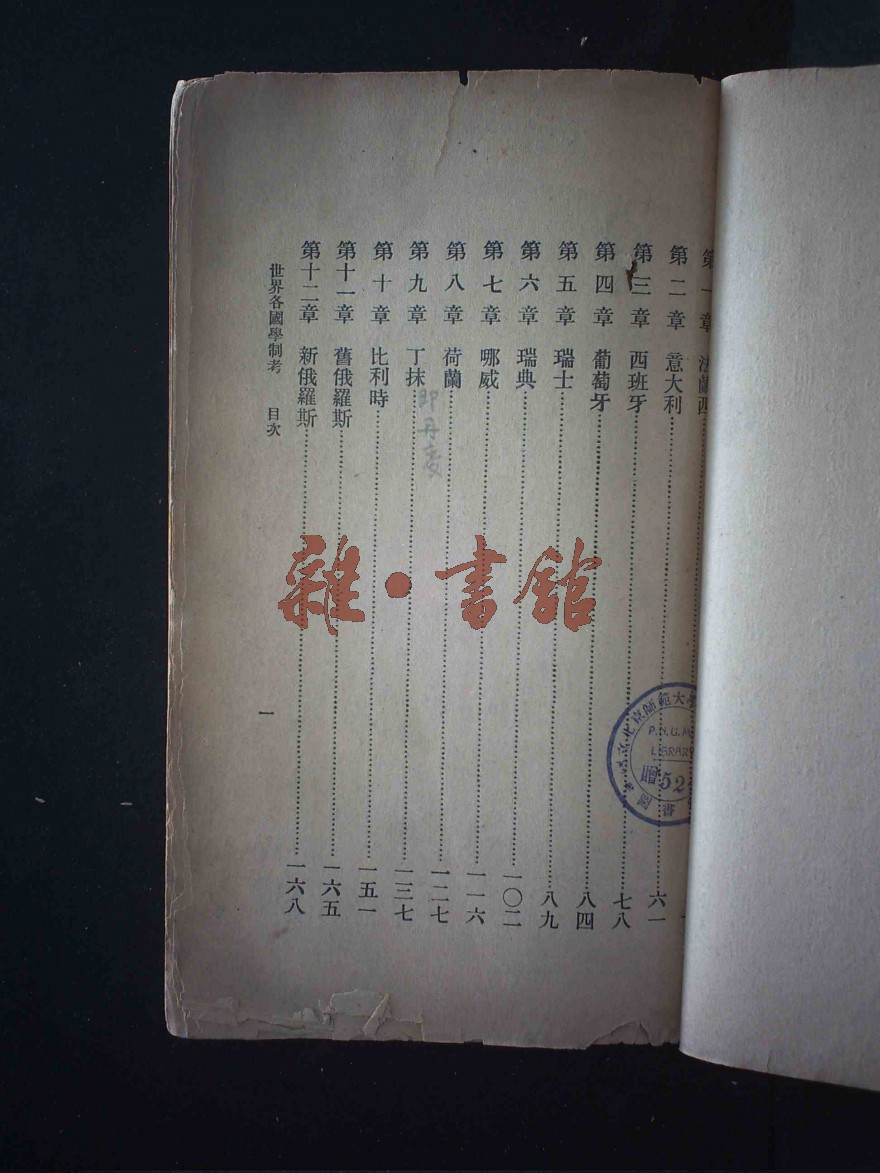 第一章 法蘭西
第二章 意大利 六一
第三章 西班牙 七八
第四章 葡萄牙 八四
第五章 瑞士 八九
第六章 瑞典 一〇二
第七章 哪威 一一六
第八章 荷蘭 一二七
第九章 丁抹 一三七
即丹麥
第十章 比利時 一五一
第十一章 舊俄羅斯 一六五
第十二章 新俄羅斯 一六八
世界各國學制考 目次
一
雜·書館
立北京師範大學
P.N.U.
LIBRARY
贈52
圖書